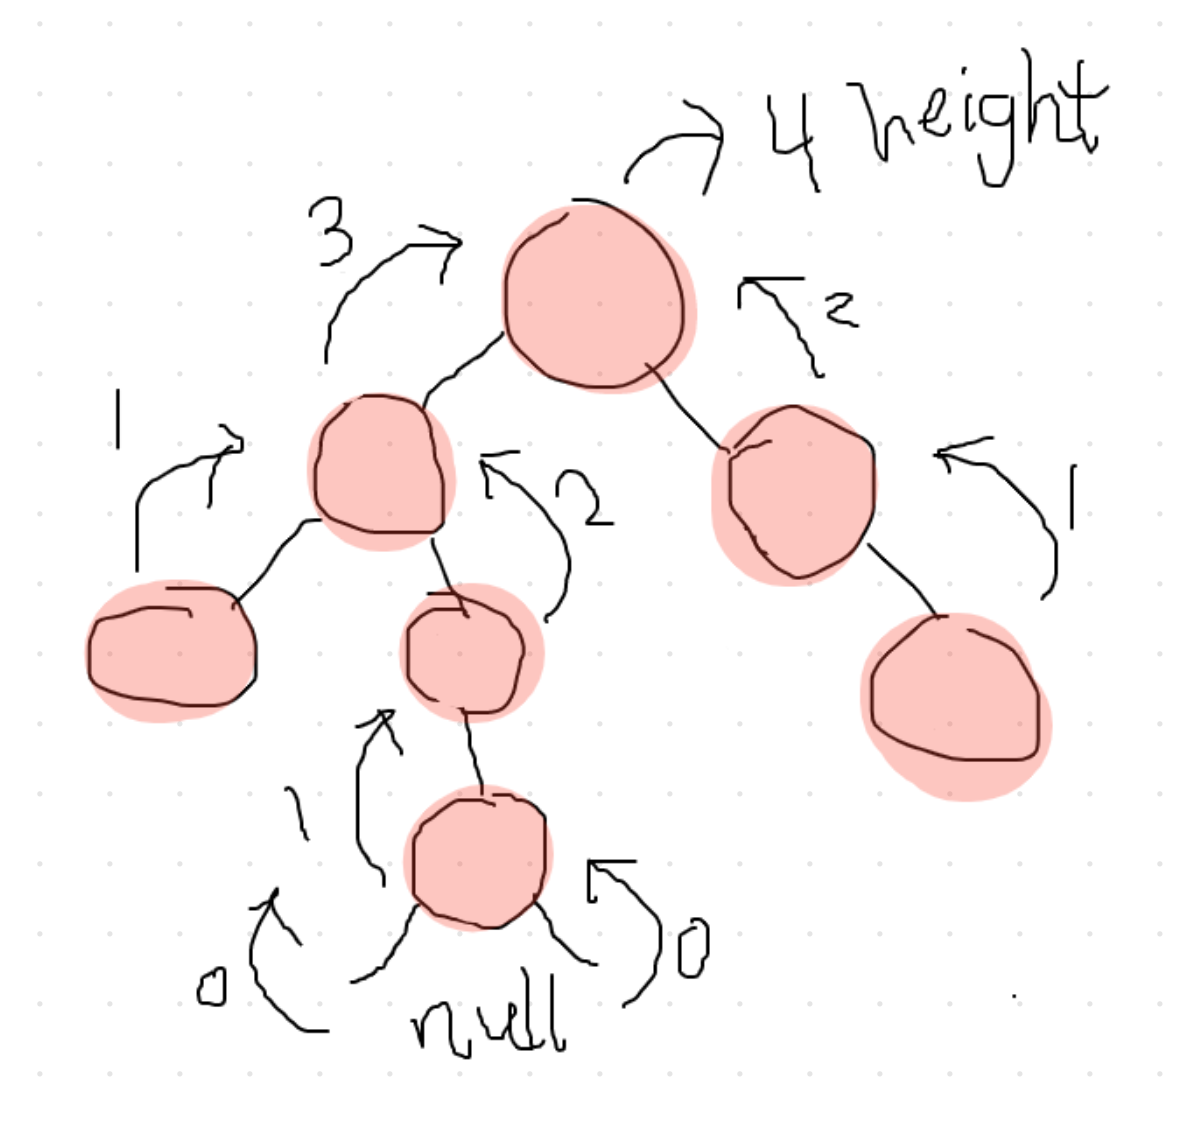 4 height
3
2
1
2
1
1
0
0
null